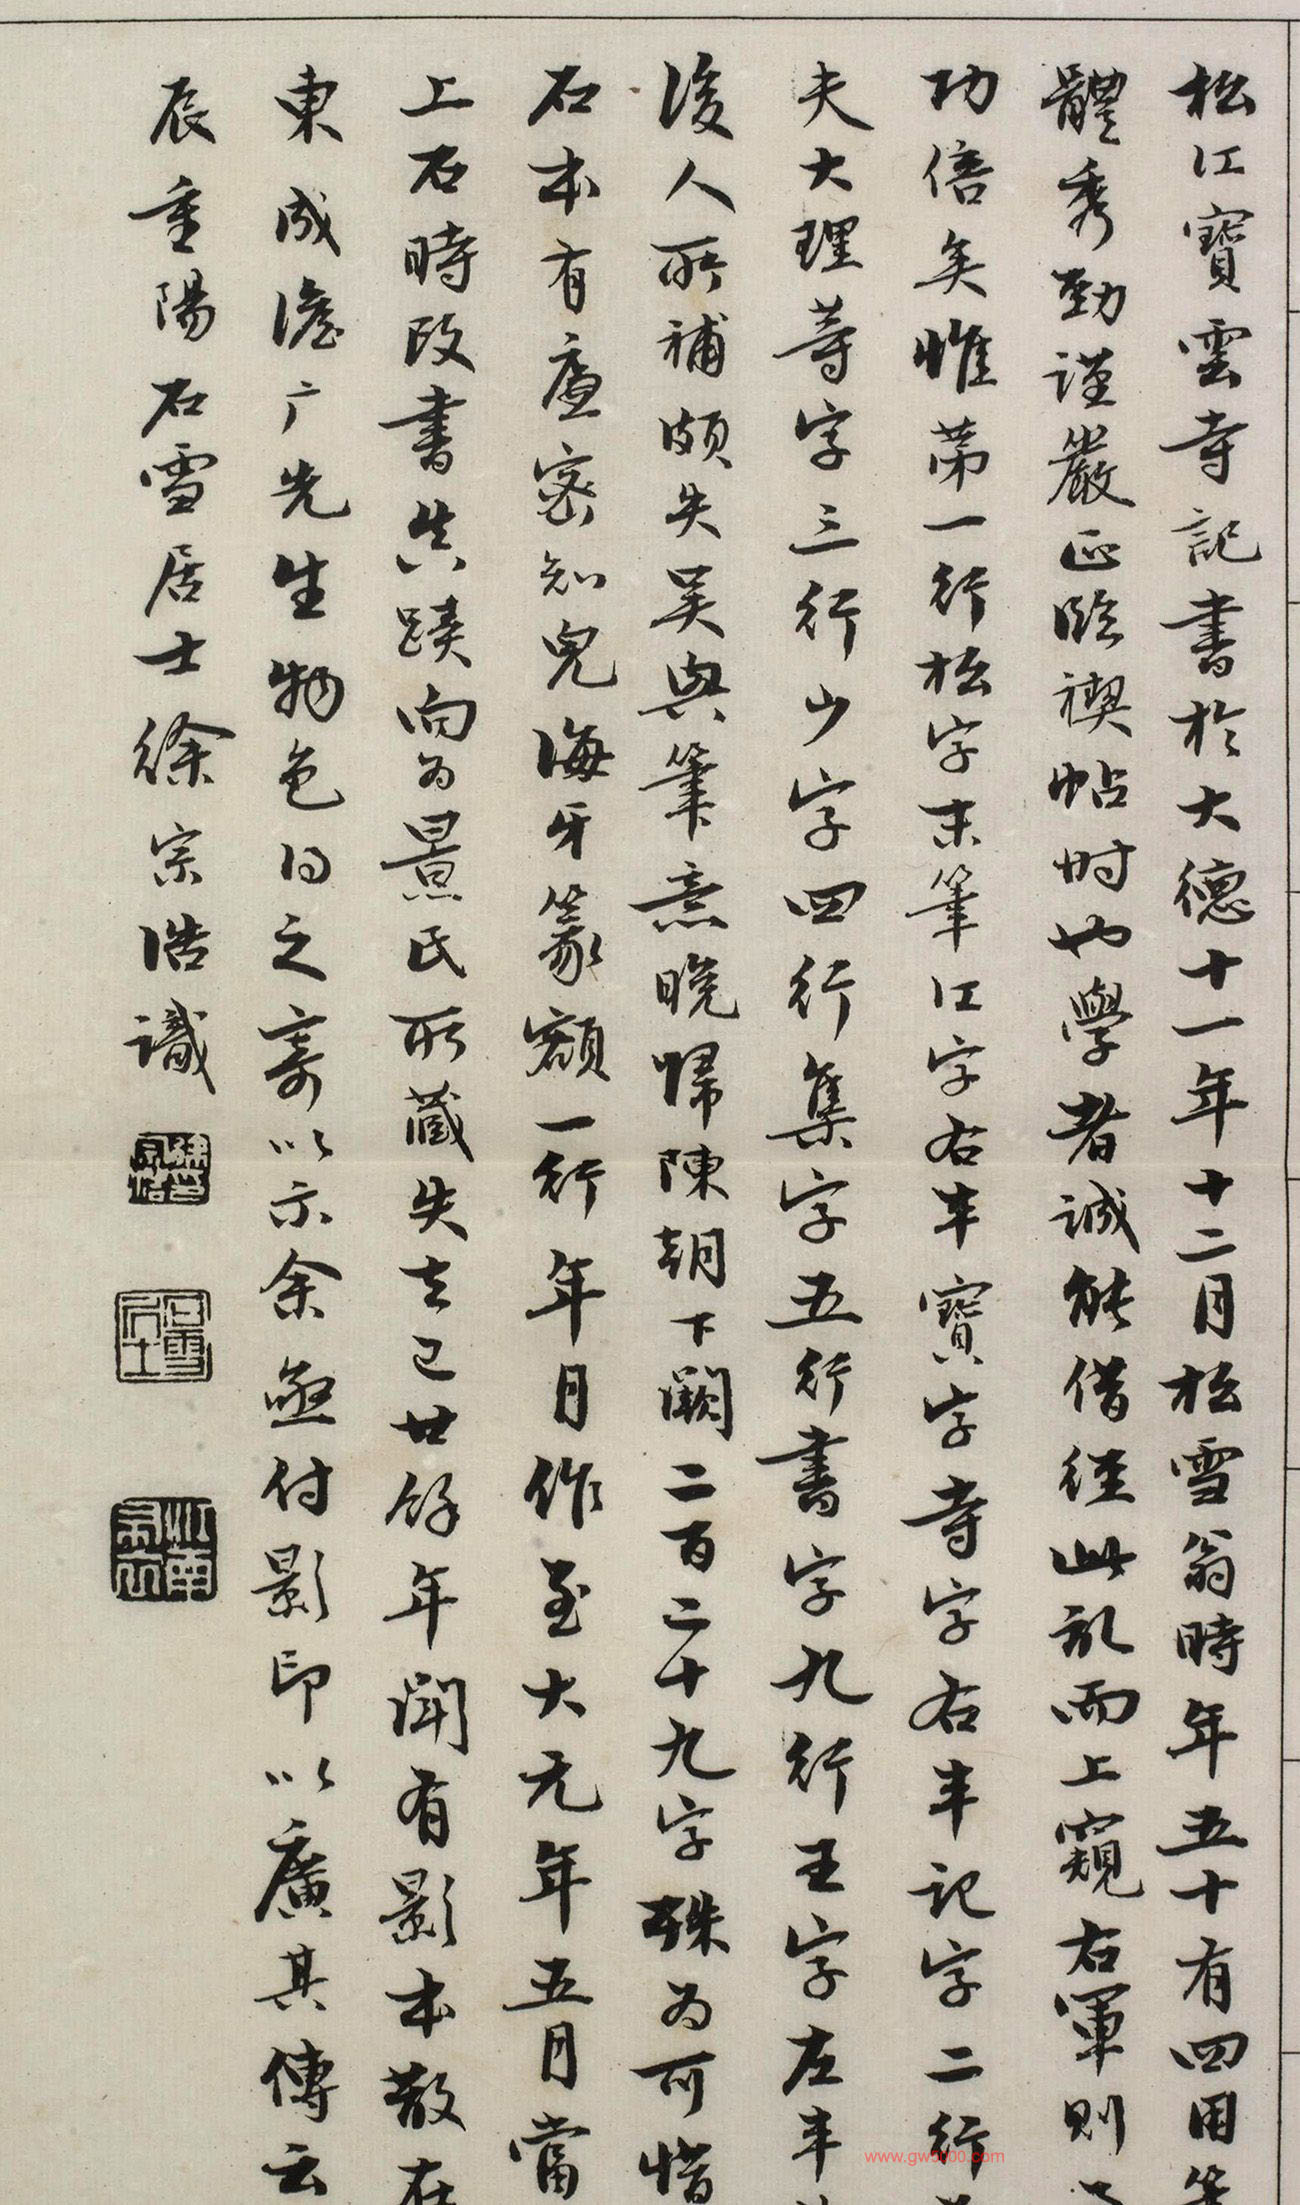 松江寶雲寺記書於大德十一年十二月松雪翁時年五十有四用筆
體秀勁謹嚴正臨禊帖時也學者誠能借徑此記而上窺右軍則
功倍矣惟第一行松字末筆江字右半寶字寺字右半記字二行
夫大理等字三行少字四行集字五行書字九行王字左半
後人所補頗失吳興筆意晚歸陳朝下闕二百二十九字殊為可惜
石本有廉密知兒海牙篆額一行年月作至大元年五月當
上石時改書真蹟向為景氏所藏失去已廿餘年聞有影本散在
東成澹广先生物色得之寄以示余亟付影印以廣其傳云
辰重陽石雪居士徐宗浩識
徐宗浩
石雪居士
www.gw5000.com